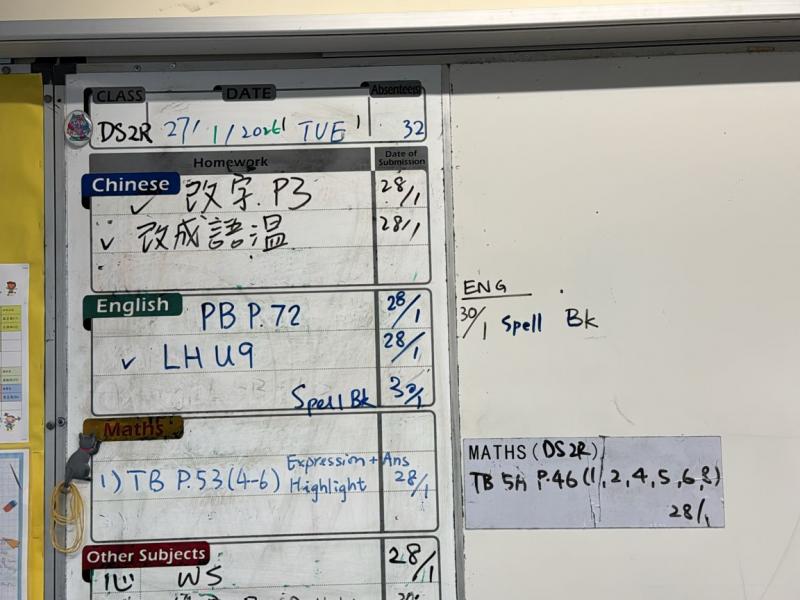 CLASS DATE Absentee(s)
DS2R 27/1/2026 TUE 32
Homework Date of Submission
Chinese
✓ 改字 P3 28/1
✓ 改成語溫 28/1
English
PB P.72 28/1
✓ LH U9 28/1
Spell Bk 30/1
Maths
1) TB P.53 (4-6) Expression + Ans
Highlight 28/1
Other Subjects
心 WS 28/1
ENG
30/1 Spell Bk
MATHS (DS2R)
TB 5A P.46 (1, 2, 4, 5, 6, 8)
28/1